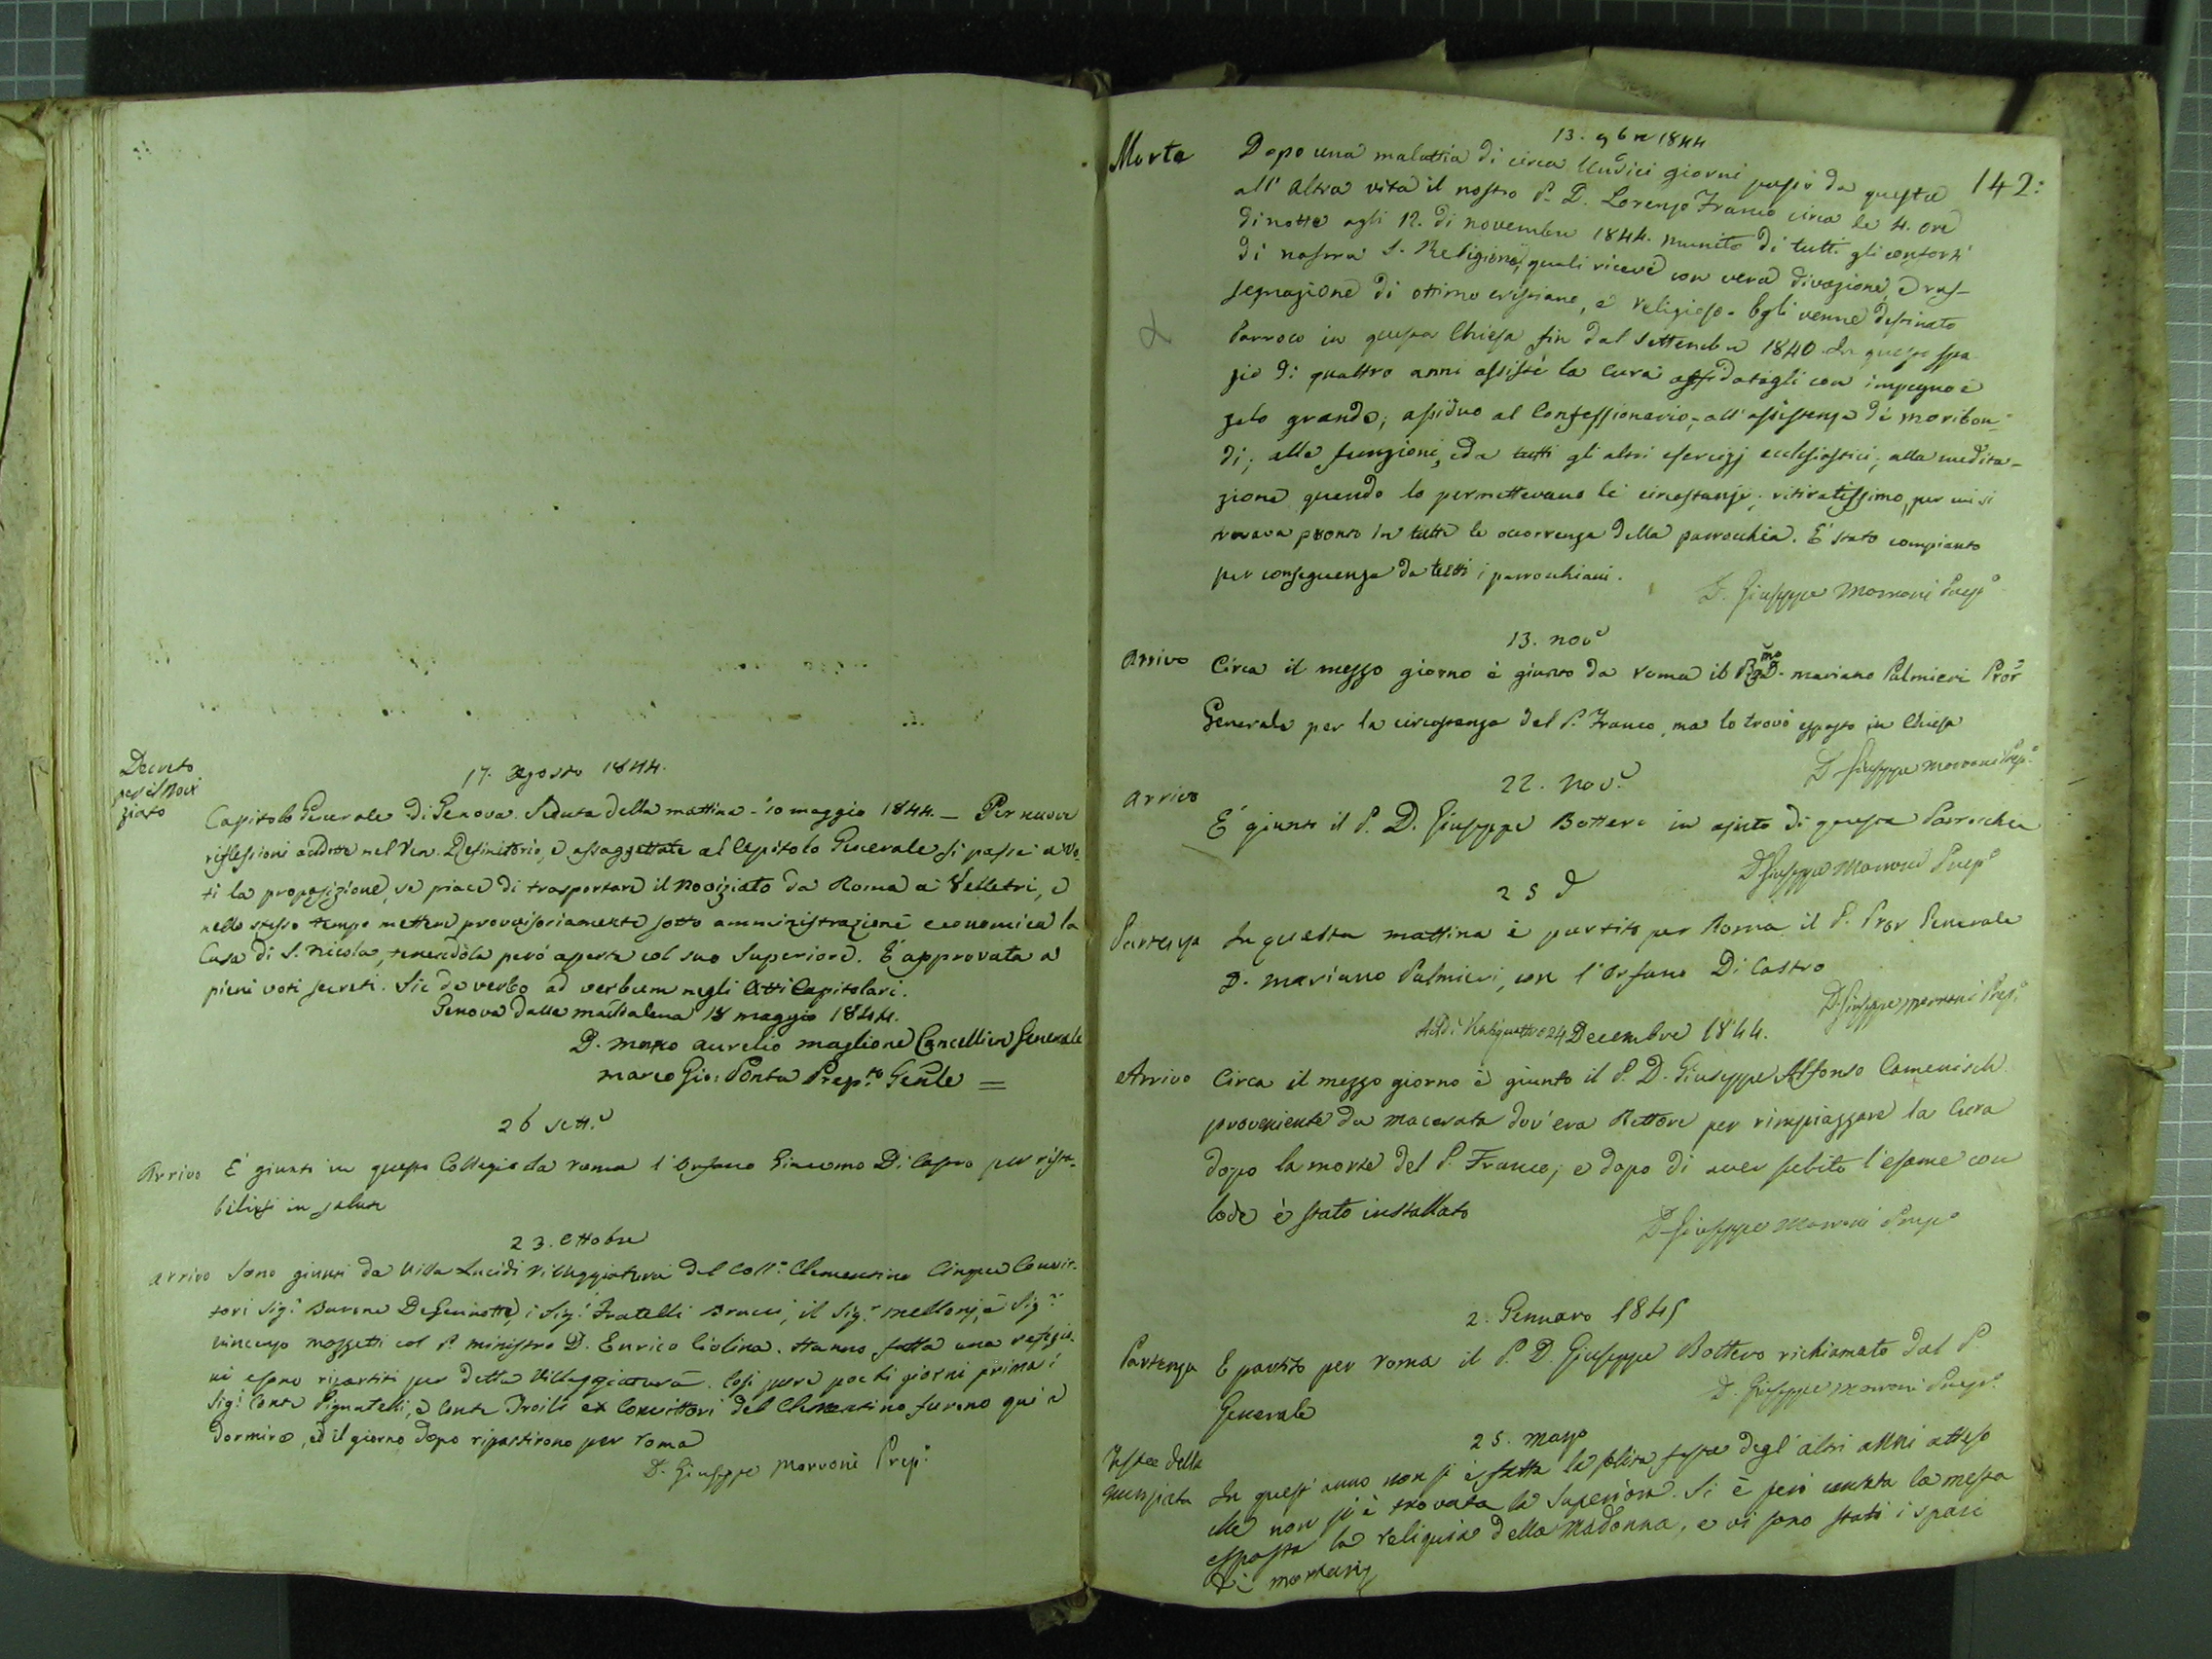 Decreto
per il Novi
ziato
17. Agosto 1844.
Capitolo Generale di Genova. Seduta della mattina - 10 maggio 1844. — Per nuove
riflessioni addotte nel Ven. Definitorio, e assoggettate al Capitolo Generale si passa a vo-
ti la proposizione, se piace di trasportare il Noviziato da Roma a Velletri, e
nello stesso tempo mettere provvisoriamente sotto amministrazione economica la
Casa di S. Nicola, tenendola però aperta col suo Superiore. È approvata a
pieni voti secreti. Sic de verbo ad verbum negli Atti Capitolari.
Genova dalla Maddalena 18 maggio 1844.
D. Marco Aurelio Maglione Cancelliere Generale
Marco Gio: Ponta Prep.to Gen̄le =
26 sett.e
Arrivo È giunto in questo Collegio da Roma l'Orfano Giacomo Di Castro per rista-
bilirsi in salute
23. Ottobre
Arrivo Sono giunti da Villa Lucidi Villeggiatura del Coll.o Clementino Cinque Convit-
tori Sig.r Barone , i Sig.i Fratelli Bracci, il Sig.r Mellonj, e Sig.r
Vincenzo Mozzetti col P. Ministro D. Enrico Ciolina. Hanno fatta una refezio-
ne e sono ripartiti per detta Villeggiatura. Così pure pochi giorni prima i
Sig.i Conte Pignatelli, e Conte Troili ex Convittori del Clementino furono qui a
dormire, ed il giorno dopo ripartirono per Roma
D. Giuseppe Marroni Prep.o
142:
13. 9bre 1844
Morte Dopo una malattia di circa Undici giorni passò da questa
all'altra vita il nostro P. D. Lorenzo Franco circa le 4. ore
di notte agli 12. di novembre 1844. munito di tutti gli conforti
di nostra S. Religione, quali ricevè con vera divozione, e ras-
segnazione di ottimo cristiano, e religioso. Egli venne destinato
Parroco in questa Chiesa fin dal Settembre 1840. In questo spa-
zio di quattro anni assistè la Cura affidatagli con impegno e
zelo grande; assiduo al Confessionario, all'assistenza de' moribon-
di, alle funzioni, ed a tutti gli altri esercizj ecclesiastici, alla medita-
zione quando lo permettevano le circostanze; ritiratissimo, per cui si
trovava pronto in tutte le occorrenze della parrocchia. È stato compianto
per conseguenza da tutti i parrocchiani.
D. Giuseppe Marroni Prep.o
13. nov.e
Arrivo Circa il mezzo giorno è giunto da Roma il R.mo P. D. Mariano Palmieri Pror
Generale per la circostanza del P. Franco, ma lo trovò esposto in Chiesa
D. Giuseppe Marroni Prep.o
22. Nov.e
Arrivo È giunto il P. D. Giuseppe Bottero in ajuto di questa Parrocchia
D. Giuseppe Marroni Prep.o
25 d
Partenza In questa mattina è partito per Roma il P. Pror Generale
D. Mariano Palmieri, con l'Orfano Di Castro
D. Giuseppe Marroni Prep.o
24 Decembre 1844.
Arrivo Circa il mezzo giorno è giunto il P. D. Giuseppe Alfonso Camenisch
proveniente da Macerata dov'era Rettore per rimpiazzare la Cura
dopo la morte del P. Franco; e dopo di aver subito l'esame con
lode è stato installato
D. Giuseppe Marroni Prep.o
2. Gennaro 1845
Partenza È partito per Roma il P. D. Giuseppe Bottero richiamato dal P.
Generale
D. Giuseppe Marroni Prep.o
25. Marzo
Festa della
Nunziata In quest'anno non si è fatta la solita festa degl'altri anni atteso
che non si è trovata la Superiora. Si è però cantata la messa
esposta la reliquia della Madonna, e vi sono stati i spari
di mortarj